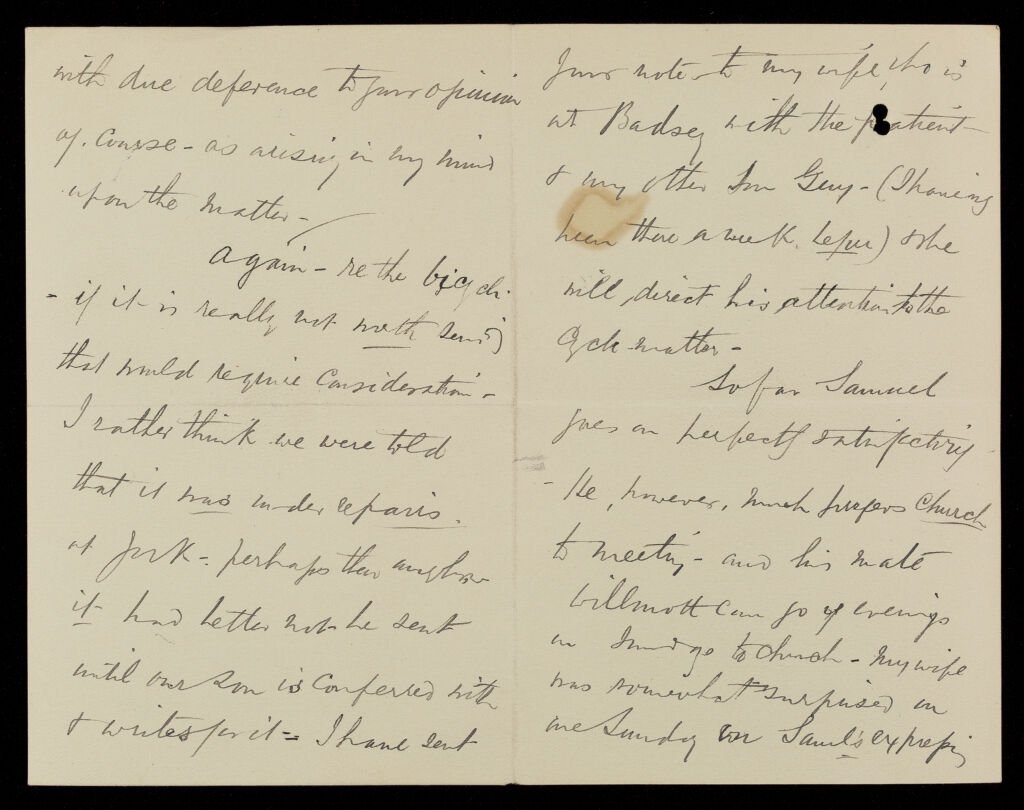 with due deference to your opinion
of course - as arising in my mind
upon the matter -
Again - re the bicycle
- if it is really not worth send(g)
that would require consideration -
I rather think we were told
that it was under repairs
at York - perhaps then anyhow
it had better not be sent
until our son is conferred with
& writes for it - I have sent
your note to my wife, who is
at Badsey with the patient
& my other son Guy - (I having
been there a week before) & she
will direct his attention to the
Cycle matter -
So far Samuel
goes on perfectly satisfactorily
- He, however, much prefers Church
to meeting - and his mate
Willmott can go of evenings
on Sundays to church - My wife
was somewhat surprised on
one Sunday on Saml's expressing